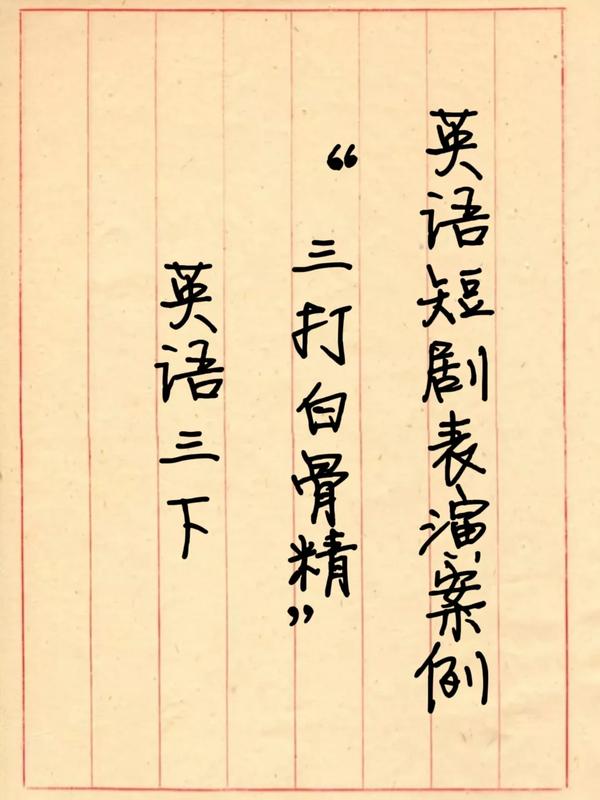 英语短剧表演案例
“三打白骨精”
英语三下